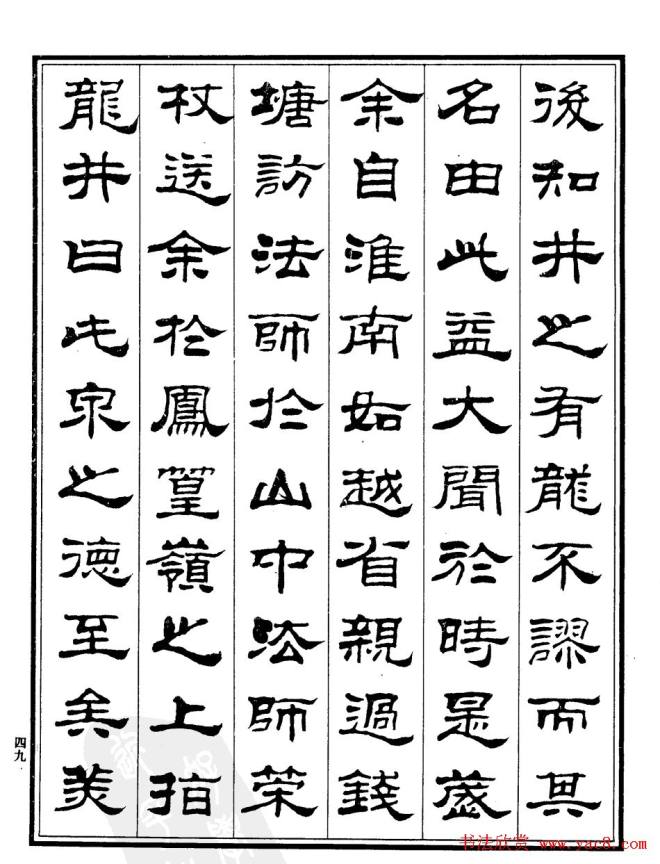 後知井之有龍不謬而其
名由此益大聞於時是歲
余自淮南如越省親過錢
塘訪法師於山中法師策
杖送余於鳳篁嶺之上指
龍井曰此泉之德至矣美
四九
书法欣赏 www.yac8.com